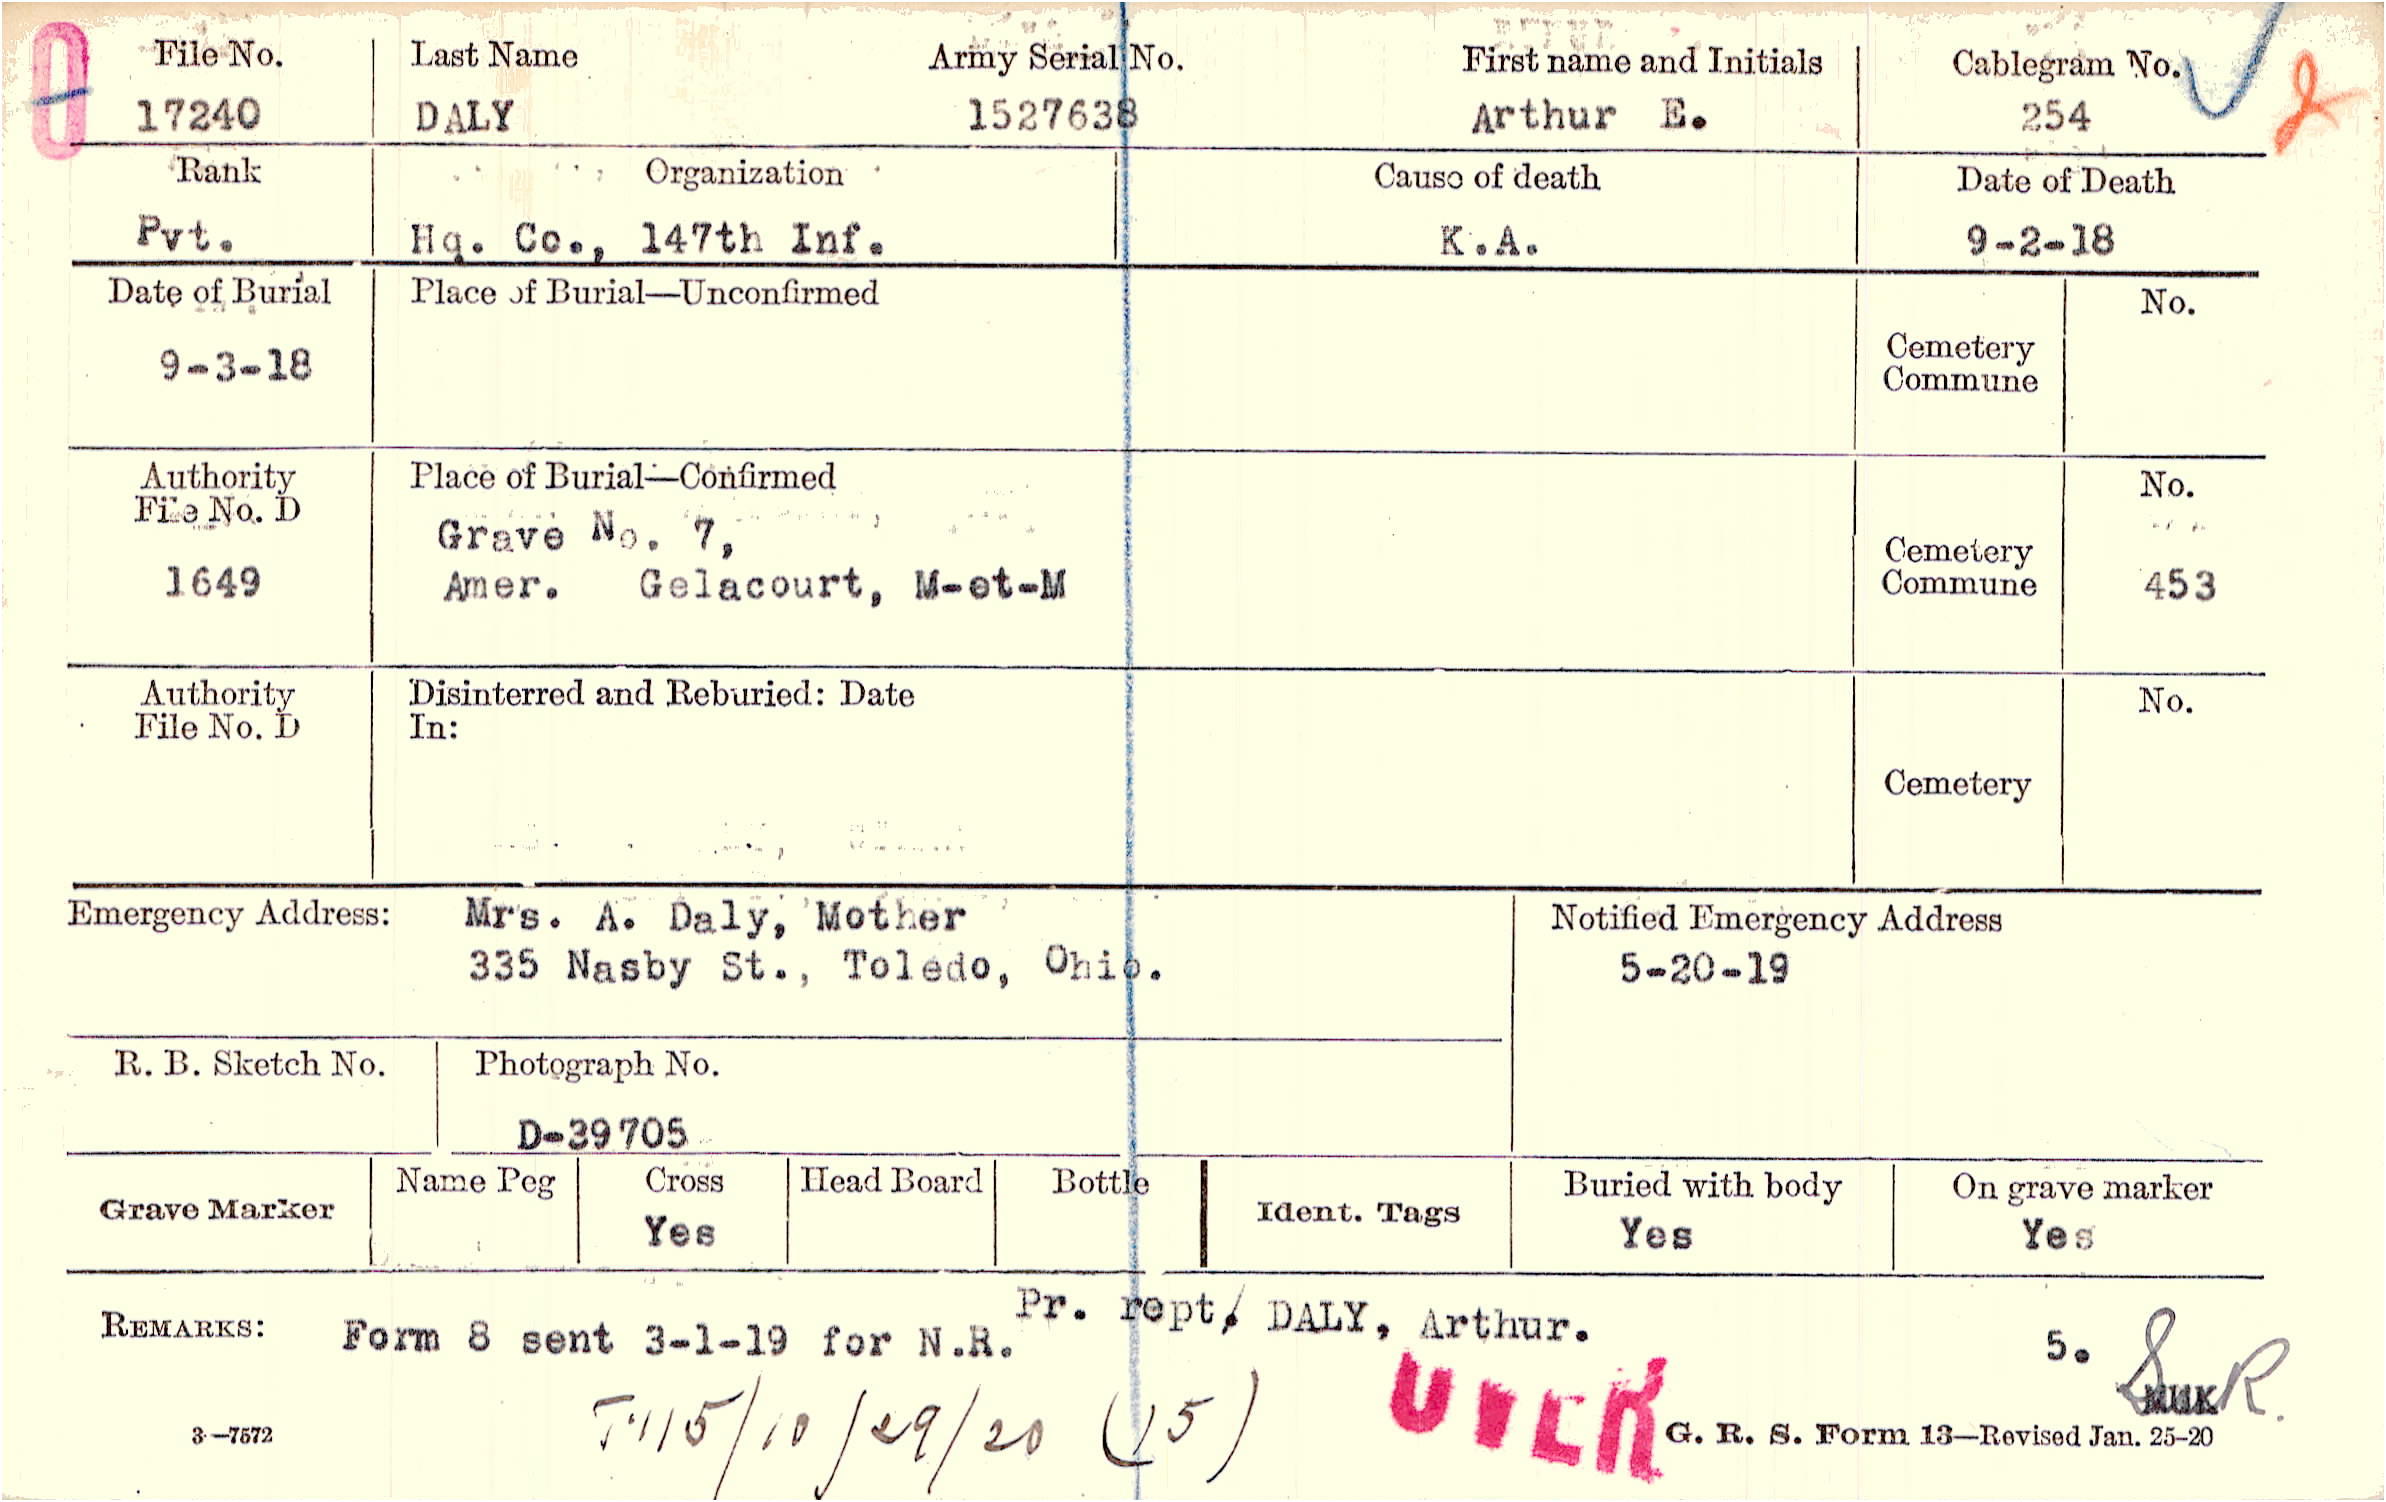 File No. Last Name Army Serial No. First name and Initials Cablegram No.
17240 DALY 1527638 Arthur E. 254
Rank Organization Cause of death Date of Death
Pvt. Hq. Co., 147th Inf. K.A. 9-2-18
Date of Burial Place of Burial—Unconfirmed No.
9-3-18
Cemetery
Commune
Authority Place of Burial—Confirmed No.
File No. D
Grave No. 7,
Cemetery
1649 Amer. Gelacourt, M-et-M Commune 453
Authority Disinterred and Reburied: Date No.
File No. D In:
Cemetery
Emergency Address: Mrs. A. Daly, Mother Notified Emergency Address
335 Nasby St., Toledo, Ohio. 5-20-19
R. B. Sketch No. Photograph No.
D-39705
Grave Marker Name Peg Cross Head Board Bottle Ident. Tags Buried with body On grave marker
Yes Yes Yes
Pr. rept. DALY, Arthur.
REMARKS: Form 8 sent 3-1-19 for N.R. 5.
10/29/20 (15)
3—7572 G. R. S. Form 13—Revised Jan. 25-20